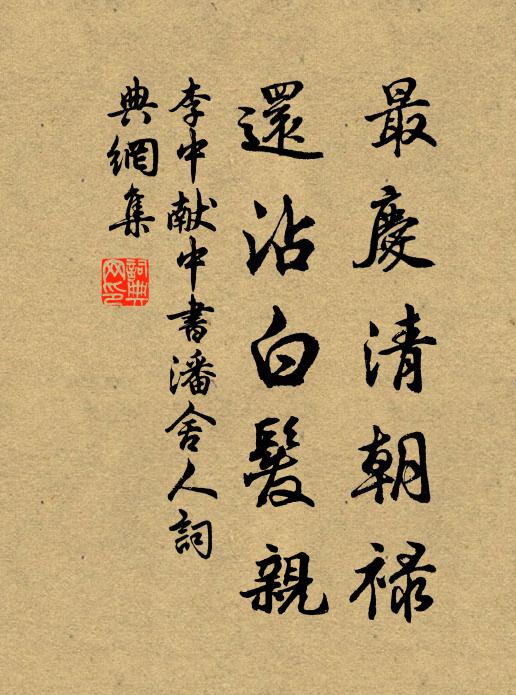 最慶清朝祿
還沾白髮親
李中献中書潘舍人詞
典網集
詞典
网印